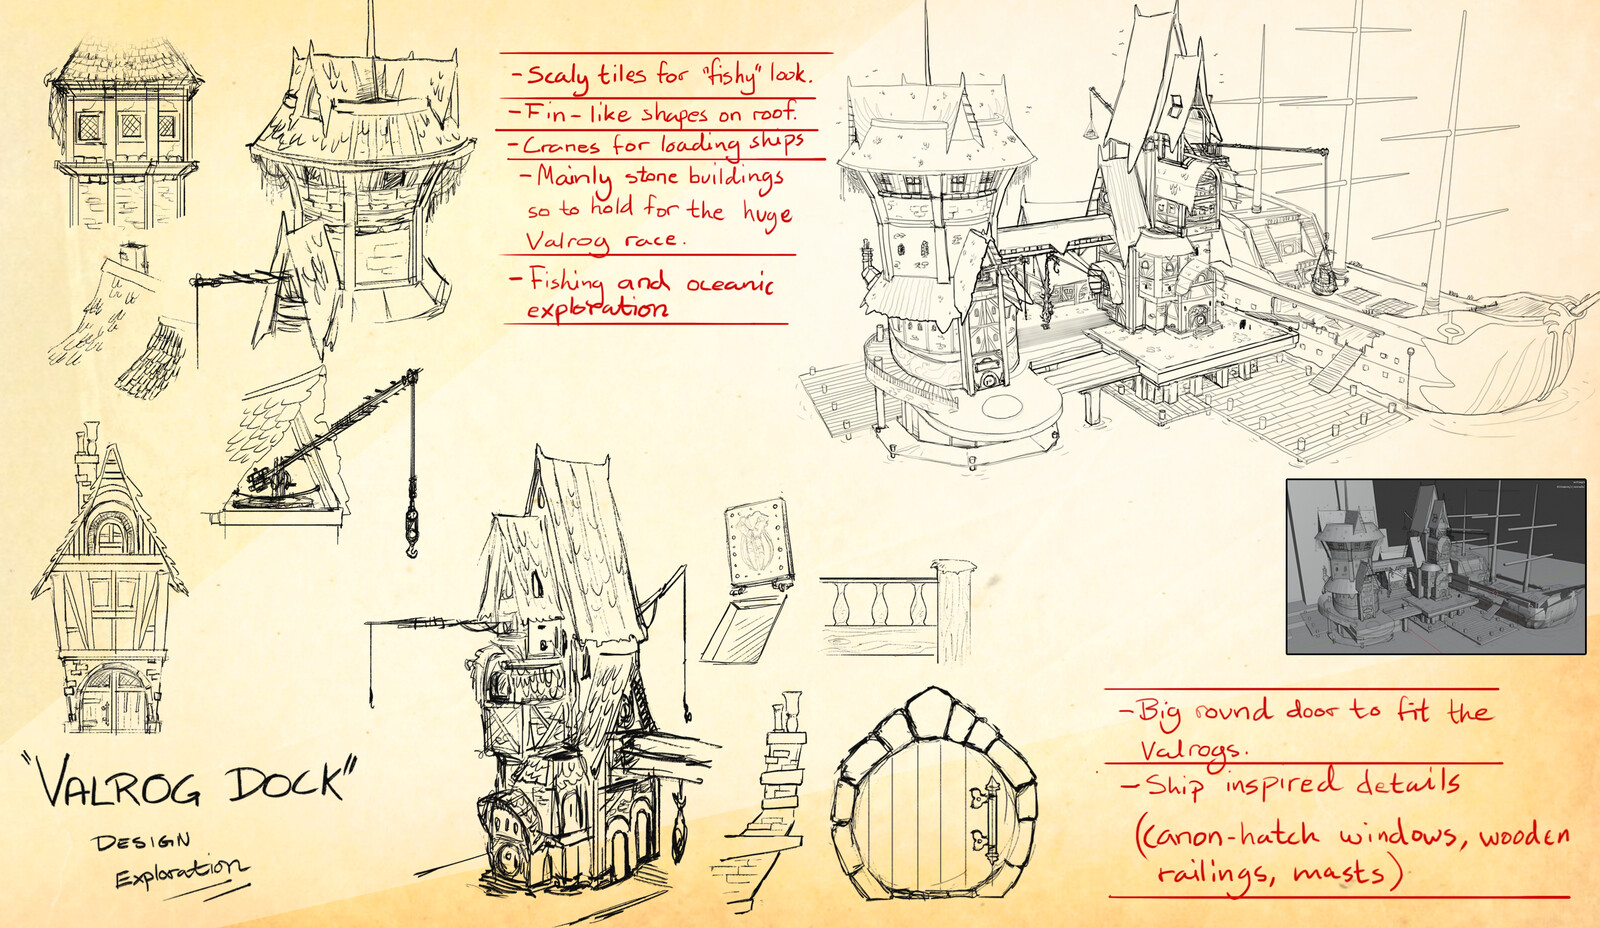 - Scaly tiles for "fishy" look.
- Fin-like shapes on roof.
- Cranes for loading ships
- Mainly stone buildings
so to hold for the huge
Valrog race.
- Fishing and oceanic
exploration
"VALROG DOCK"
DESIGN
Exploration
- Big round door to fit the
Valrogs.
- Ship inspired details
(canon-hatch windows, wooden
railings, masts)